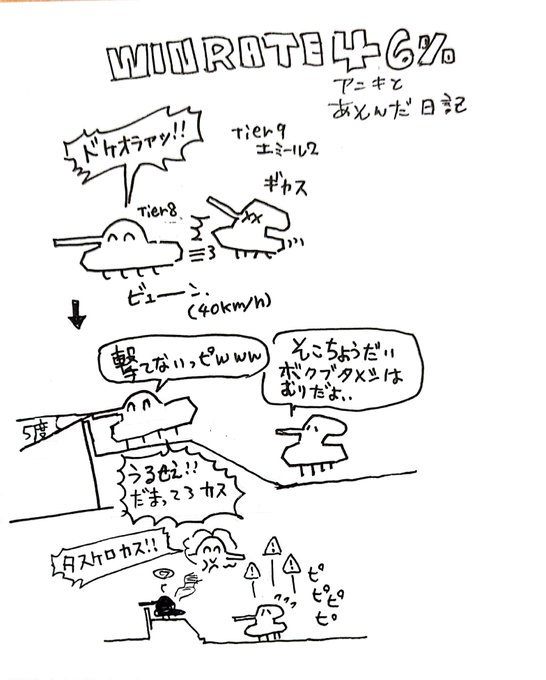 WINRATE46%
アニキと
あそんだ日記
ドケオラァッ!!
Tier9
エミール2
Tier8
ギカス
ビューーン
(40km/h)
撃てないっピwww
そこちょうだい
ボクブタメシは
むりだよ..
5度
うるせぇ!!
だまってろカス
タスケロカス!!
ピ
ピピ
ピ